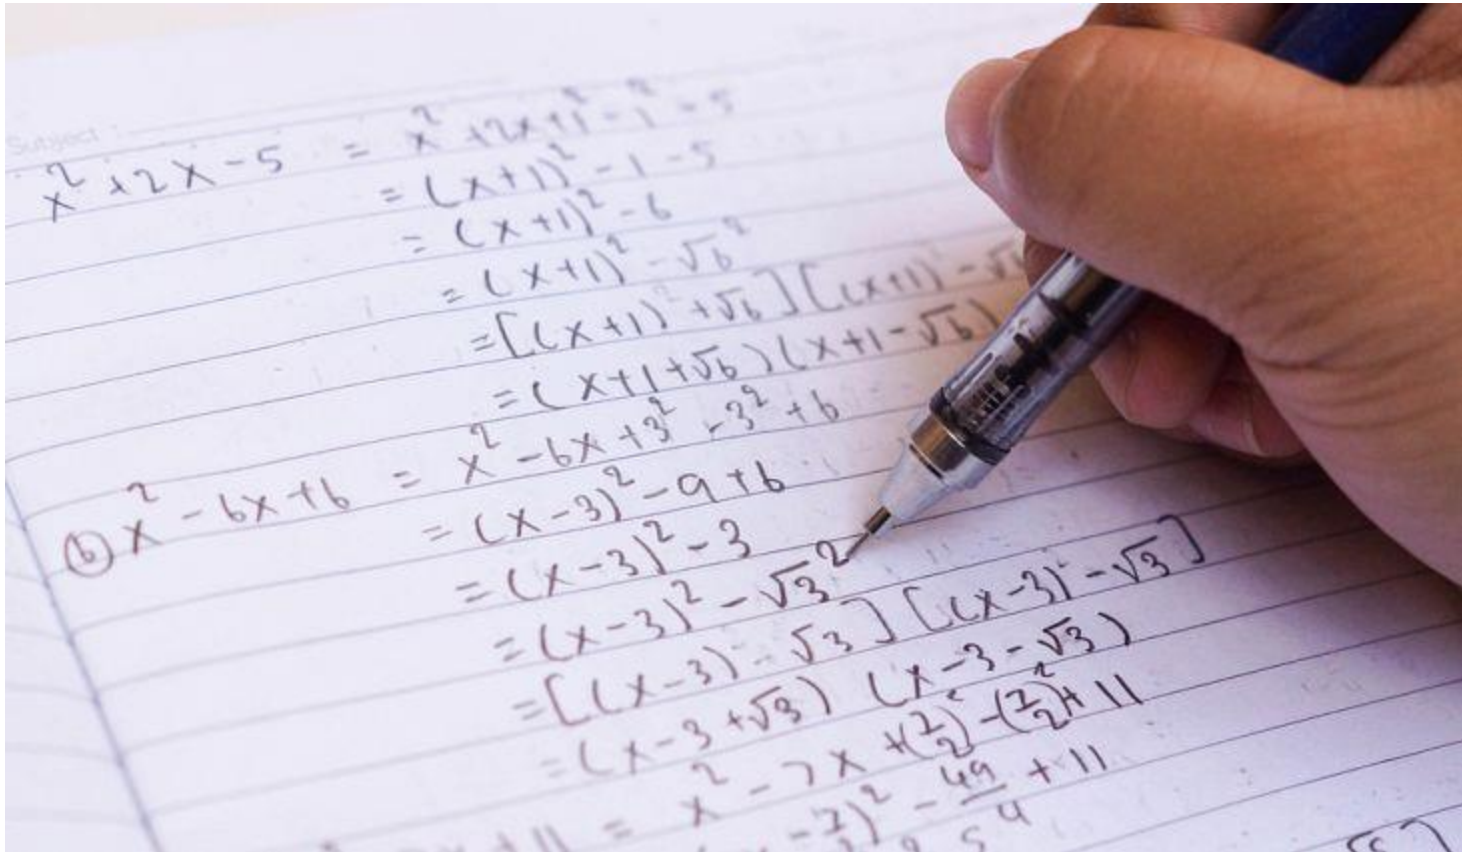 Subject :
x² + 2x - 5 = x² + 2x + 1² - 1² - 5
= (x+1)² - 1 - 5
= (x+1)² - 6
= (x+1)² - √6²
= [(x+1)² + √6] [(x+1)² - √6
= (x+1+√6) (x+1-√6)
ⓑ x² - 6x + 6 = x² - 6x + 3² - 3² + 6
= (x-3)² - 9 + 6
= (x-3)² - 3
= (x-3)² - √3²
= [(x-3) - √3] [(x-3) - √3]
= (x-3+√3) (x-3-√3)
x + 11 = x² - 7x + (7/2)² - (7/2)² + 11
- 7/2)² - 49/4 + 11